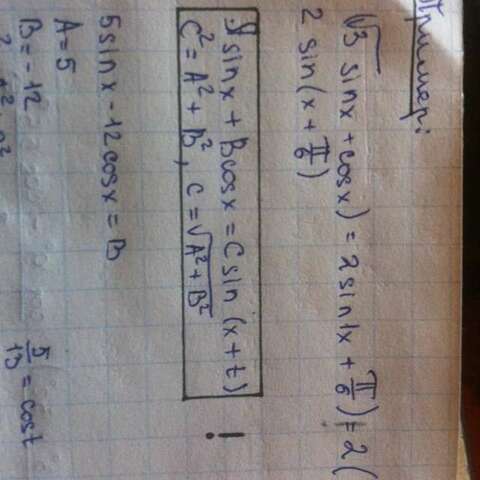 Пример:
√3 sinx + cosx) = 2 sin(x + π/6) = 2(
2 sin(x + π/6)
A sinx + Bcosx = C sin(x + t)
C² = A² + B², C = √A² + B² !
5 sinx - 12 cosx = B
A = 5
B = -12
5/13 = cost